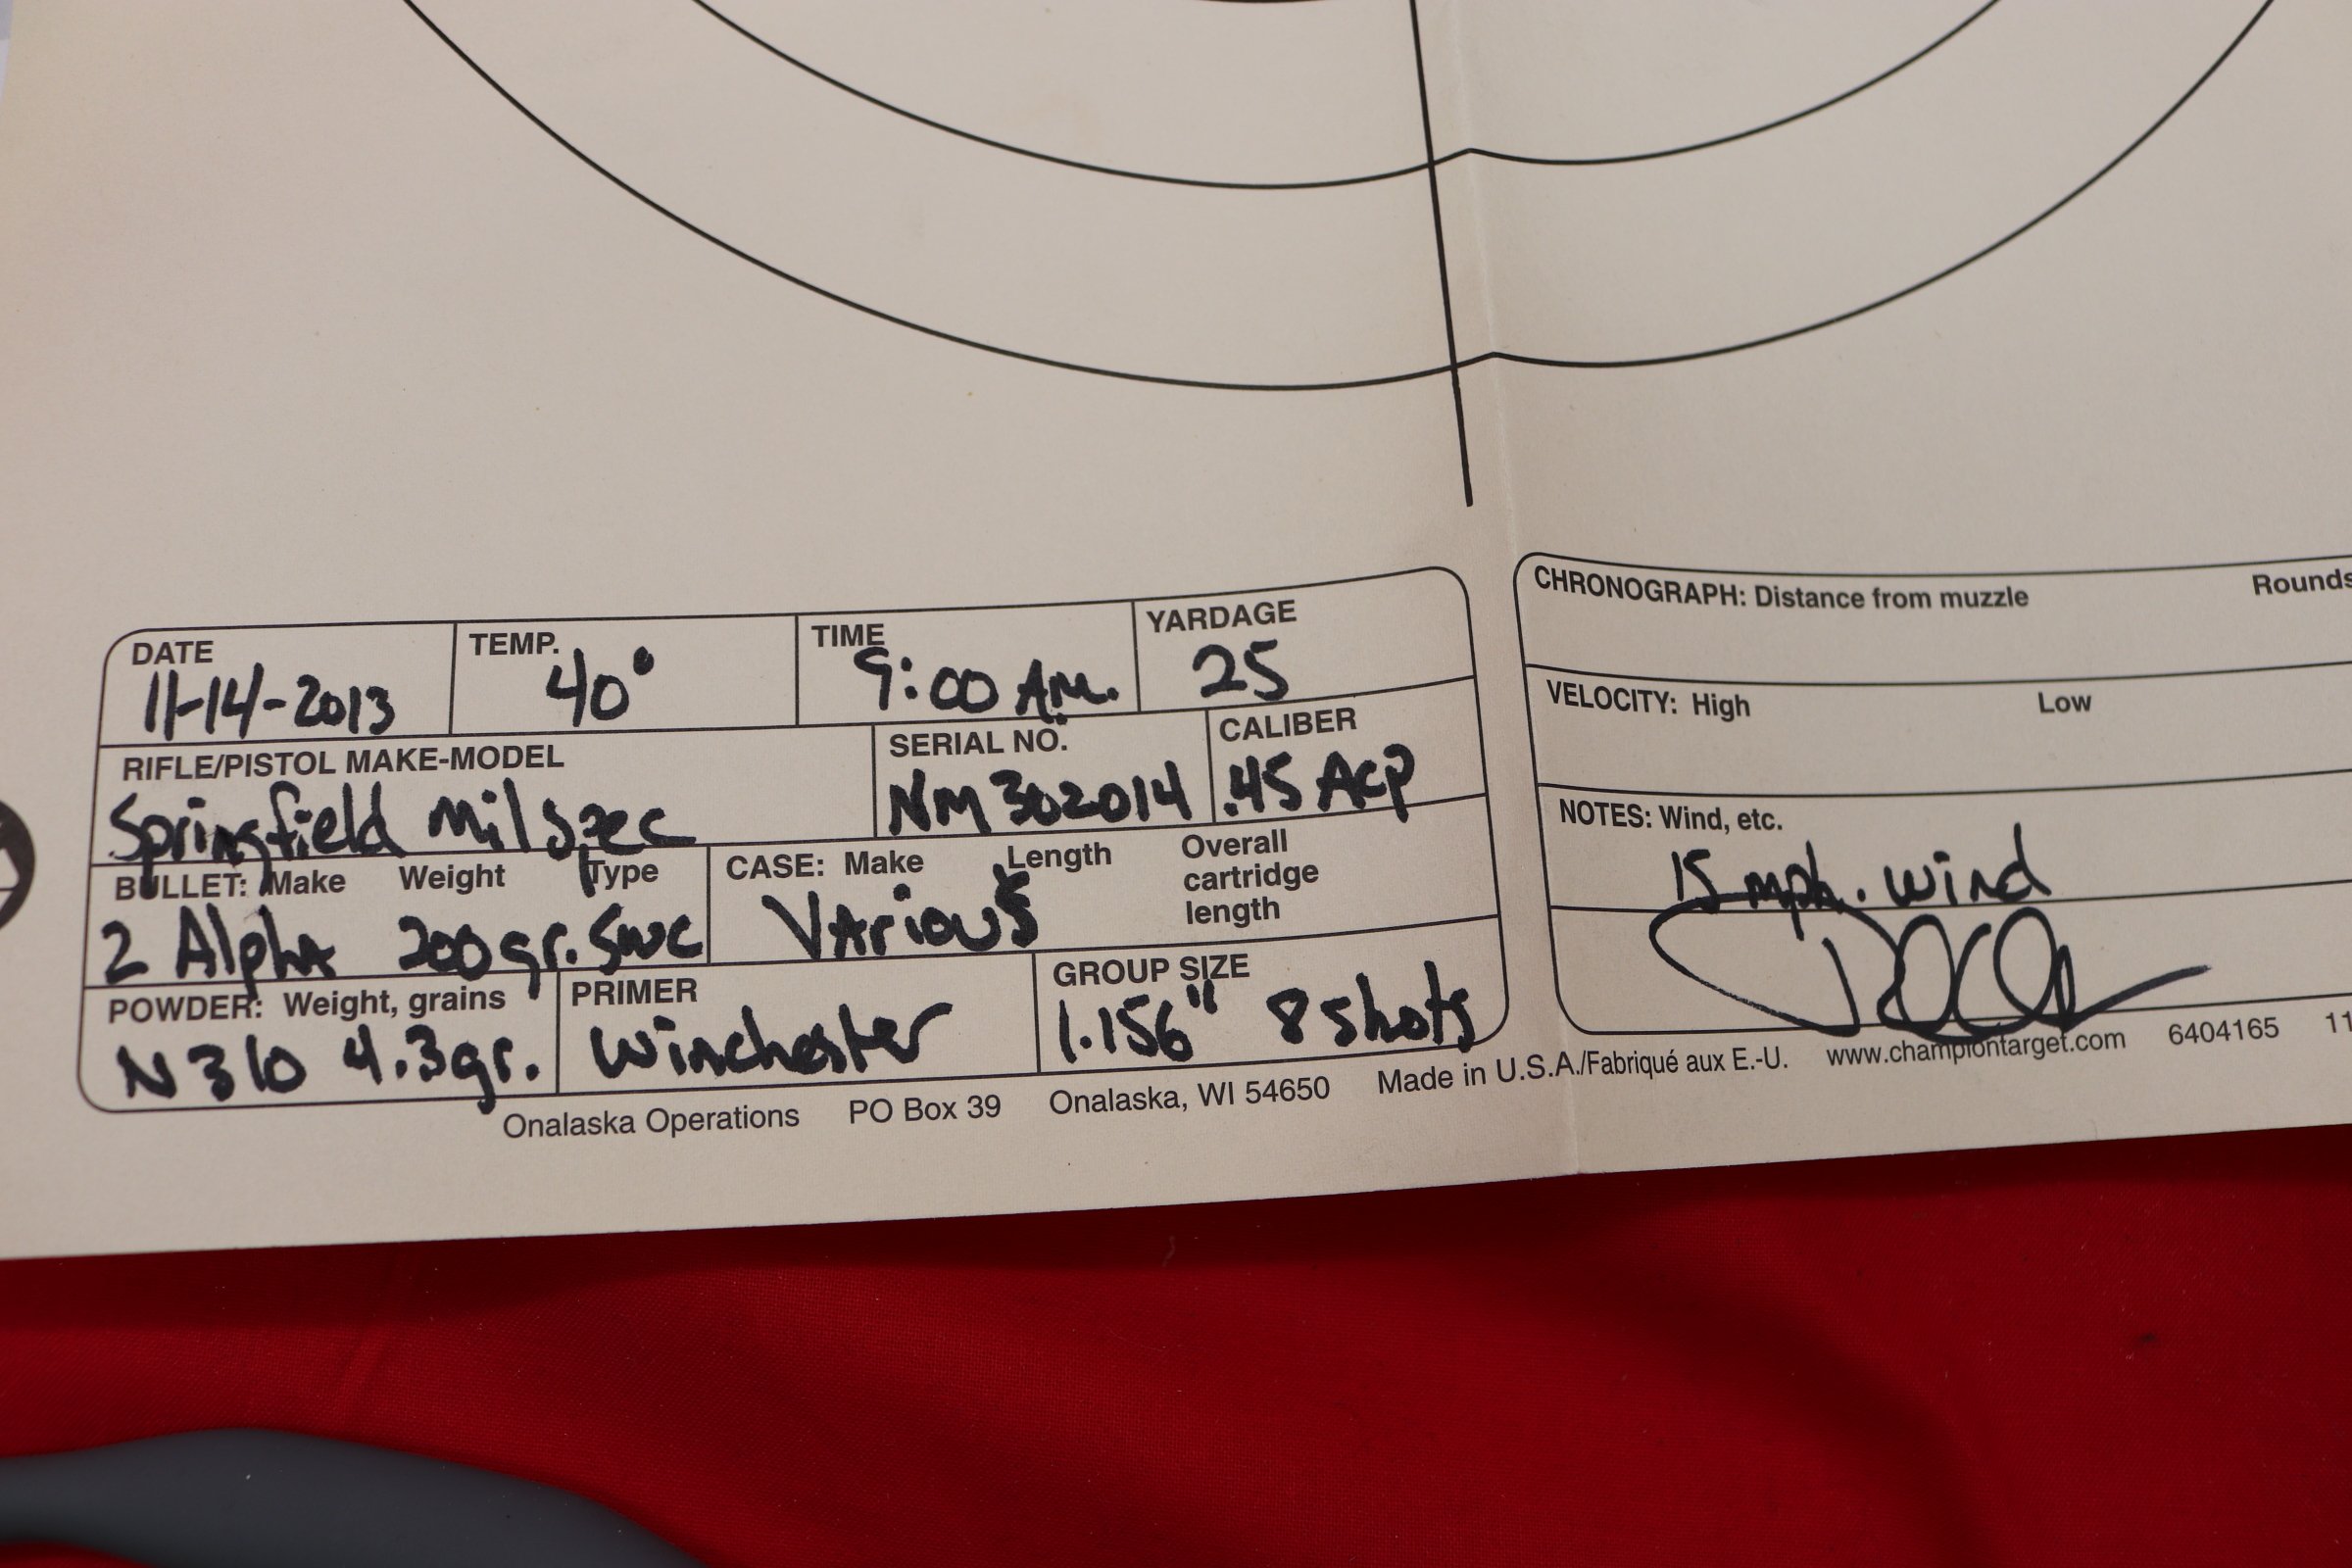 DATE TEMP. TIME YARDAGE
11-14-2013 40° 9:00 A.M. 25
RIFLE/PISTOL MAKE-MODEL SERIAL NO. CALIBER
Springfield Mil Spec NM302014 .45 ACP
BULLET: Make Weight Type CASE: Make Length Overall cartridge length
2 Alpha 200gr. SWC Various
POWDER: Weight, grains PRIMER GROUP SIZE
N310 4.3gr. Winchester 1.156" 8 shots
CHRONOGRAPH: Distance from muzzle Rounds
VELOCITY: High Low
NOTES: Wind, etc.
15 mph. wind
Onalaska Operations PO Box 39 Onalaska, WI 54650 Made in U.S.A./Fabriqué aux E.-U. www.championtarget.com 6404165 11